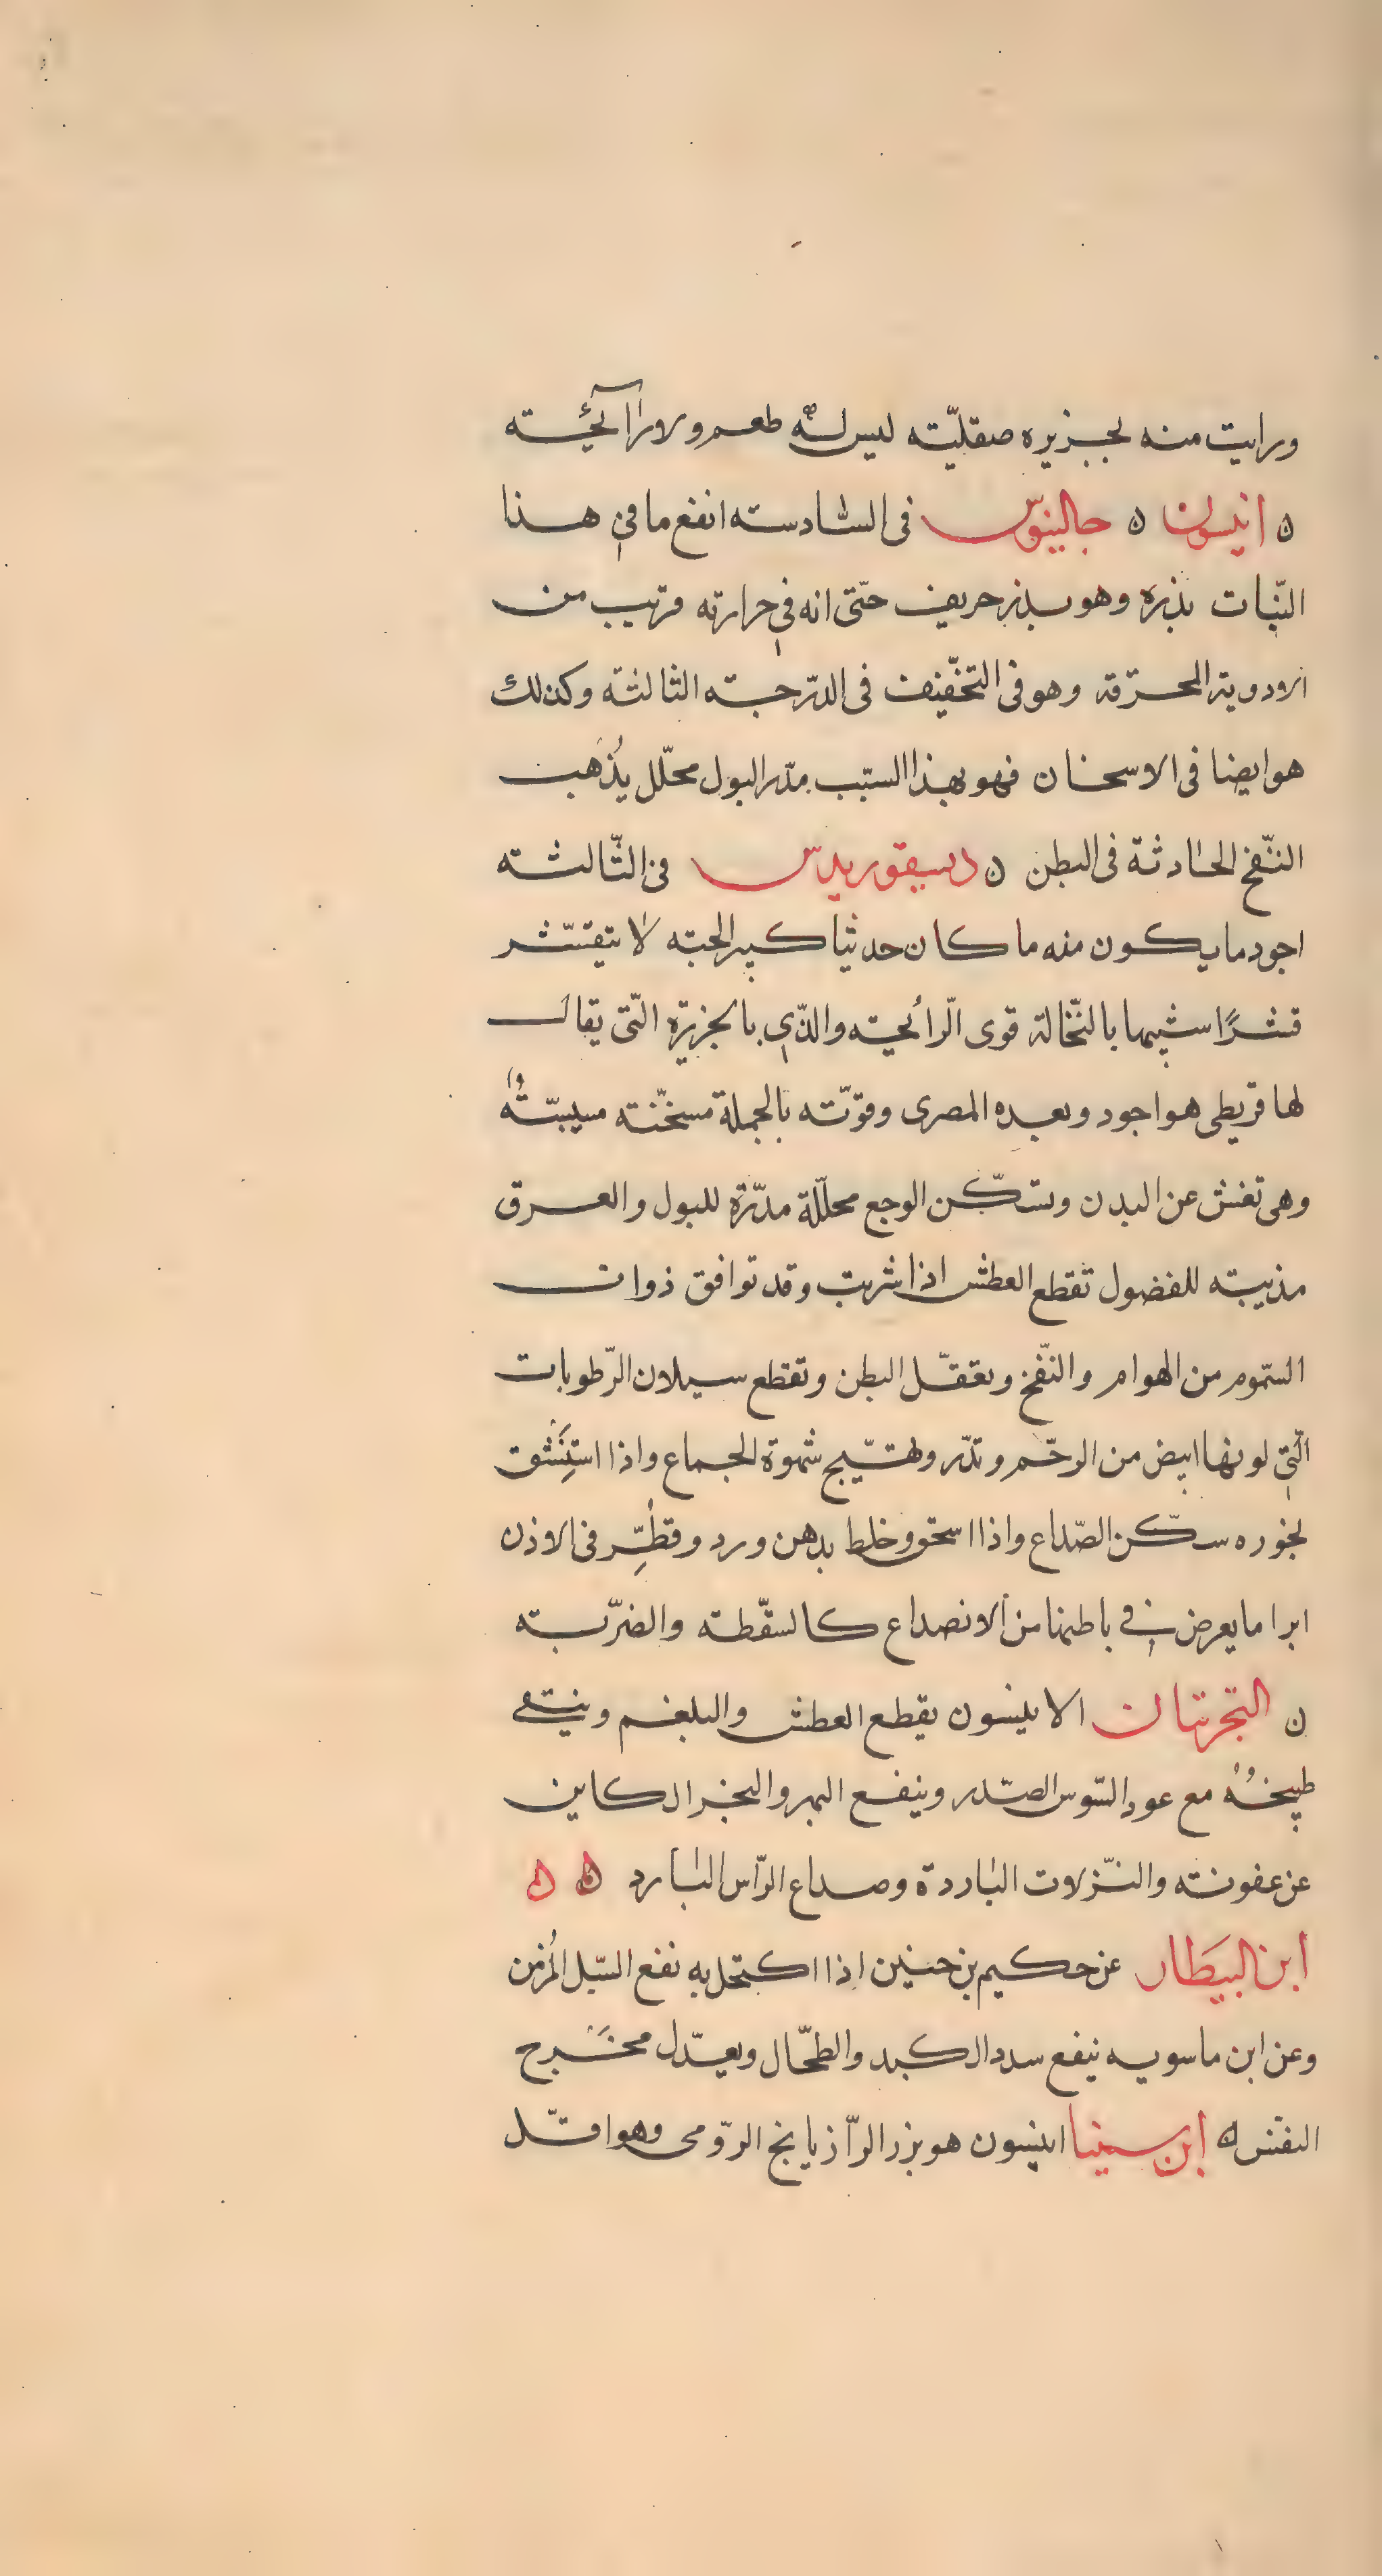 ورايت منه بجزيره صقليّته ليس له طعم ولا رآئحته
ه انيسون ه جالينوس فى السّادسته انفع ما فى هذا
النّبات بذره وهو بذر حريف حتّى انه فى حرارته قريب من
الادوية المحرّقه وهو فى التخفّيف فى الدّرجته الثالثته وكذلك
هو ايضا فى الاسخان فهو بهذا السّبب مدّر البول محلّل يُذهب
النّفخ الحادثة فى البطن ه ديسقوريدس فى الثّالثته
اجود ما يكون منه ما كان حديثا كبير الحبته لا يتقشّر
قشرًا شبيها بالنّخالة قوى الّرائحيته والذّى بالجزيرة الّتى يقال
لها قريطى هو اجود وبعده المصرى وقوّته بالجملة مسخّنته ميبسّتُه
وهى تفش عن البدن وتسّكن الوجع محلّلة مدّرة للبول والعرق
مذيبته للفضول تقطع العطش اذا شربت وقد توافق ذوات
السّموم من الهوام والنّفخ وتعقّل البطن وتقطع سيلان الرّطوبات
الّتى لونها ابيض من الرحّم وتدّر وتهيّج شهوة الجماع واذا استنِشَق
بخوره سكّن الصّداع واذا اسحق وخلط بدهن ورد وقطّر فى الاذن
ابرا ما يعرض فى باطنها من الانصداع كالسقّطته والضرّبته
ه التجربتان الانيسون يقطع العطش والبلغم وينقى
طبيخُهُ مع عود السّوس الصّدر وينفع البهر والبخر الكاين
عن عفونته والنّزلات الباردة وصداع الرّاس البارد ه ه
ابن البيطار عن حكيم بن حنين اذا اكتحل به نفع السّبل المُزمن
وعن ابن ماسويه ينفع سدد الكبد والطحّال ويعدّل مخرج
النفس ه ابن سينا انيسون هو بزر الرّازيانج الرّومى وهو اقّل